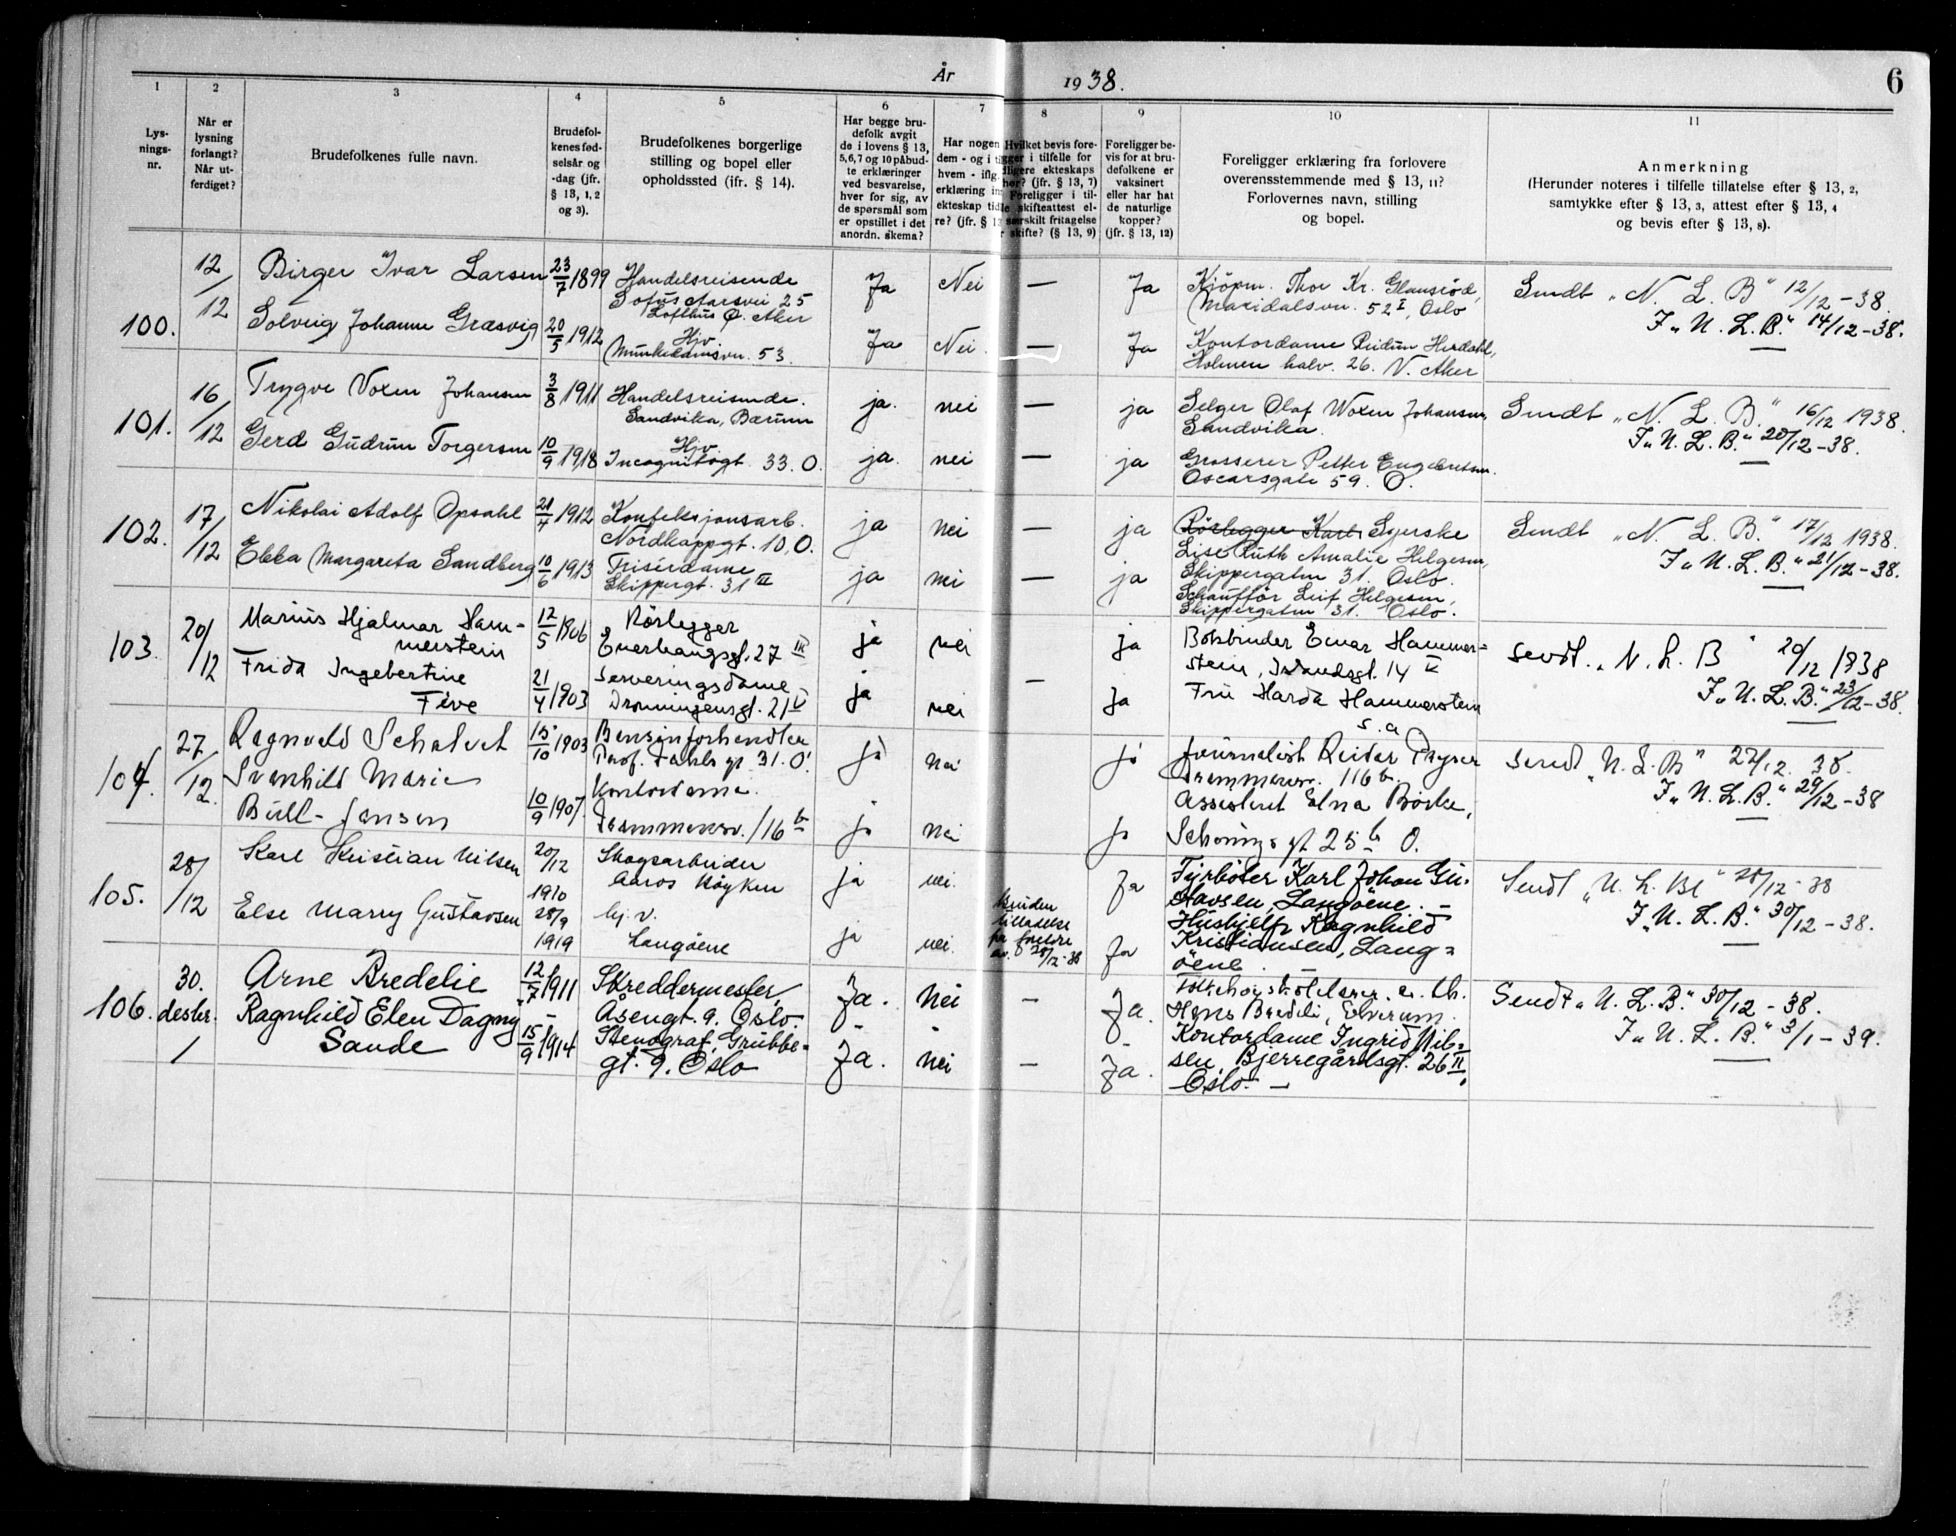 År 1938.
6
1
2
3
4
5
6
7
8
9
10
11
Lys-
nings-
nr.
Når er
lysning
forlangt?
Når ut-
ferdiget?
Brudefolkenes fulle navn.
Brudefol-
kenes fød-
selsår og
-dag (jfr.
§ 13, 1, 2
og 3).
Brudefolkenes borgerlige
stilling og bopel eller
opholdssted (ifr. § 14).
Har begge bru-
defolk avgit
de i lovens § 13,
5,6,7 og 10 påbud-
te erklæringer
ved besvarelse,
hver for sig, av
de spørsmål som
er opstillet i det
anordn. skema?
Har nogen
dem - og i
hvem - iflg.
erklæring
ekteskap
re? (jfr. §
Hvilket bevis fore-
ligger i tilfelle for
ekteskaps
(jfr. § 13, 7)
Foreligger i til-
skifteattest el-
særskilt fritagelse
skifte? (§ 13, 9)
Foreligger be-
vis for at bru-
defolkene er
vaksinert
eller har hat
de naturlige
kopper?
(jfr. § 13, 12)
Foreligger erklæring fra forlovere
overensstemmende med § 13, 11?
Forlovernes navn, stilling
og bopel.
Anmerkning
(Herunder noteres i tilfelle tillatelse efter § 13, 2,
samtykke efter § 13, 3, attest efter § 13, 4
og bevis efter § 13, 8).
100.
12/12
Birger Ivar Larsen
23/7 1899
Handelsreisende
Sofus Aarsvei 25
Lofthus Ø. Aker
Ja
Nei
—
Ja
Kjöpm. Thor Kr.
Maridalsvn. 52 I, Oslo
Sendt „N. L. B" 12/12-38.
I „N. L. B." 14/12-38.
Solveig Johanne Græsvig
20/5 1912
Hjv.
Munkedamsvn. 53.
Ja
Nei.
—
Ja
Kontordame Reidun
Holmen halv. 26. V. Aker
101.
16/12
Trygve Woxen Johansen
3/8 1911
Handelsreisende.
Sandvika, Bærum
ja.
nei
—
ja
Selger Olaf Woxen Johansen,
Sandvika.
Sendt „N. L. B." 16/12 1938.
I „N. L. B." 20/12-38.
Gerd Gudrun Torgersen
10/9 1918
Hjv.
Incognitogt. 33. O.
ja.
nei
—
ja
Grosserer Petter Engebretsen.
Oscarsgate 59. O.
102.
17/12
Nikolai Adolf Opsahl
21/4 1912
Konfeksjonsarb.
Nordkappgt. 10. O.
ja
nei
—
ja
Rörlegger Karl Syerske
Lise Ruth Amalie Helgesen,
Skippergaten 31. Oslo.
Sendt „N. L. B." 17/12 1938.
I „N. L. B." 21/12-38.
Ebba Margareta Sandberg
10/6 1913
Frisérdame
Skippergt. 31 III
ja
nei
—
ja
Schauffør Leif Helgesen,
Skippergaten 31. Oslo.
103.
20/12
Marius Hjalmar Ham-
merstein
12/5 1906
Rörlegger
Enerhaugsgt. 27 III
ja
nei
ja
Bokbinder Einar Hammer-
stein, Islandsgt. 14
sendt. „N. L. B" 20/12 1938
I „N. L. B." 23/12-38.
Frida Ingebertine
Five
21/4 1903
Serveringsdame
Dronningensgt. 21 V
ja
nei
—
ja
Fru Harda Hammerstein
s.a
104.
27/12.
Ragnvald Schatvet
15/10 1903
Bensinforhandler
Prof. Dahls gt 31. O.
ja
nei
ja
Journalist Reidar
Drammensv. 116 b.
sendt „N. L. B" 27/12. 38.
I „N. L. B." 29/12-38
Svanhild Marie
Bull-Jansen
10/9 1907.
Kontordame.
Drammensv. 116 b
ja
nei
ja
Assistent Elna Börke,
Schönings gt 25 b O.
105.
28/12
Karl Kristian Nilsen
20/12
1910
Skogsarbeider
Aaros Röyken
ja
nei.
Ja
Fyrböter Karl Johan Gu-
stavsen, Langöene. —
Sendt „N. L. Bl" 28/12-38
I „N. L. B." 30/12-38.
Else Marry Gustavsen
28/9
1919
hj.v.
Langöene
ja
nei.
Bruden
tillatelse
fra foreldre
av. 28/12-38
Ja
Hushjelp Ragnhild
Kristiansen, Lang=
öene.
106.
30.
desbr.
/
Arne Bredelie
12/7 1911
Skreddermester,
Åsengt. 9. Oslo.
Ja.
Nei
—
Ja.
Folkehøiskolelærer
Hans Bredeli, Elverum.
Sendt „N. L. B." 30/12-38.
I „N. L. B." 3/1-39.
Ragnhild Elen Dagny
Sande
15/9 1914
Stenograf, Grubbe=
gt. 9. Oslo
Ja.
Nei
—
Ja.
Kontordame Ingrid Nil=
sen, Bjerregårdsgt. 26 II,
Oslo. —